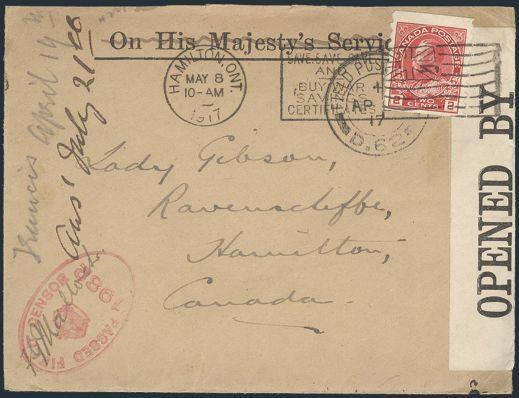 On His Majesty's Servic
HAMILTON, ONT.
MAY 8
10-AM
1917
SAVE, SAVE, S
AND
BUY WAR
SAV
CERTIFICATES
FIELD POST
AP
17
D.62
CANADA POSTAGE
2 TWO CENTS 2
Francis April 19
Ans' July 21
Lady Gibson,
Ravenscliffe,
Hamilton,
Canada.
CENSOR
PASSED
OPENED BY